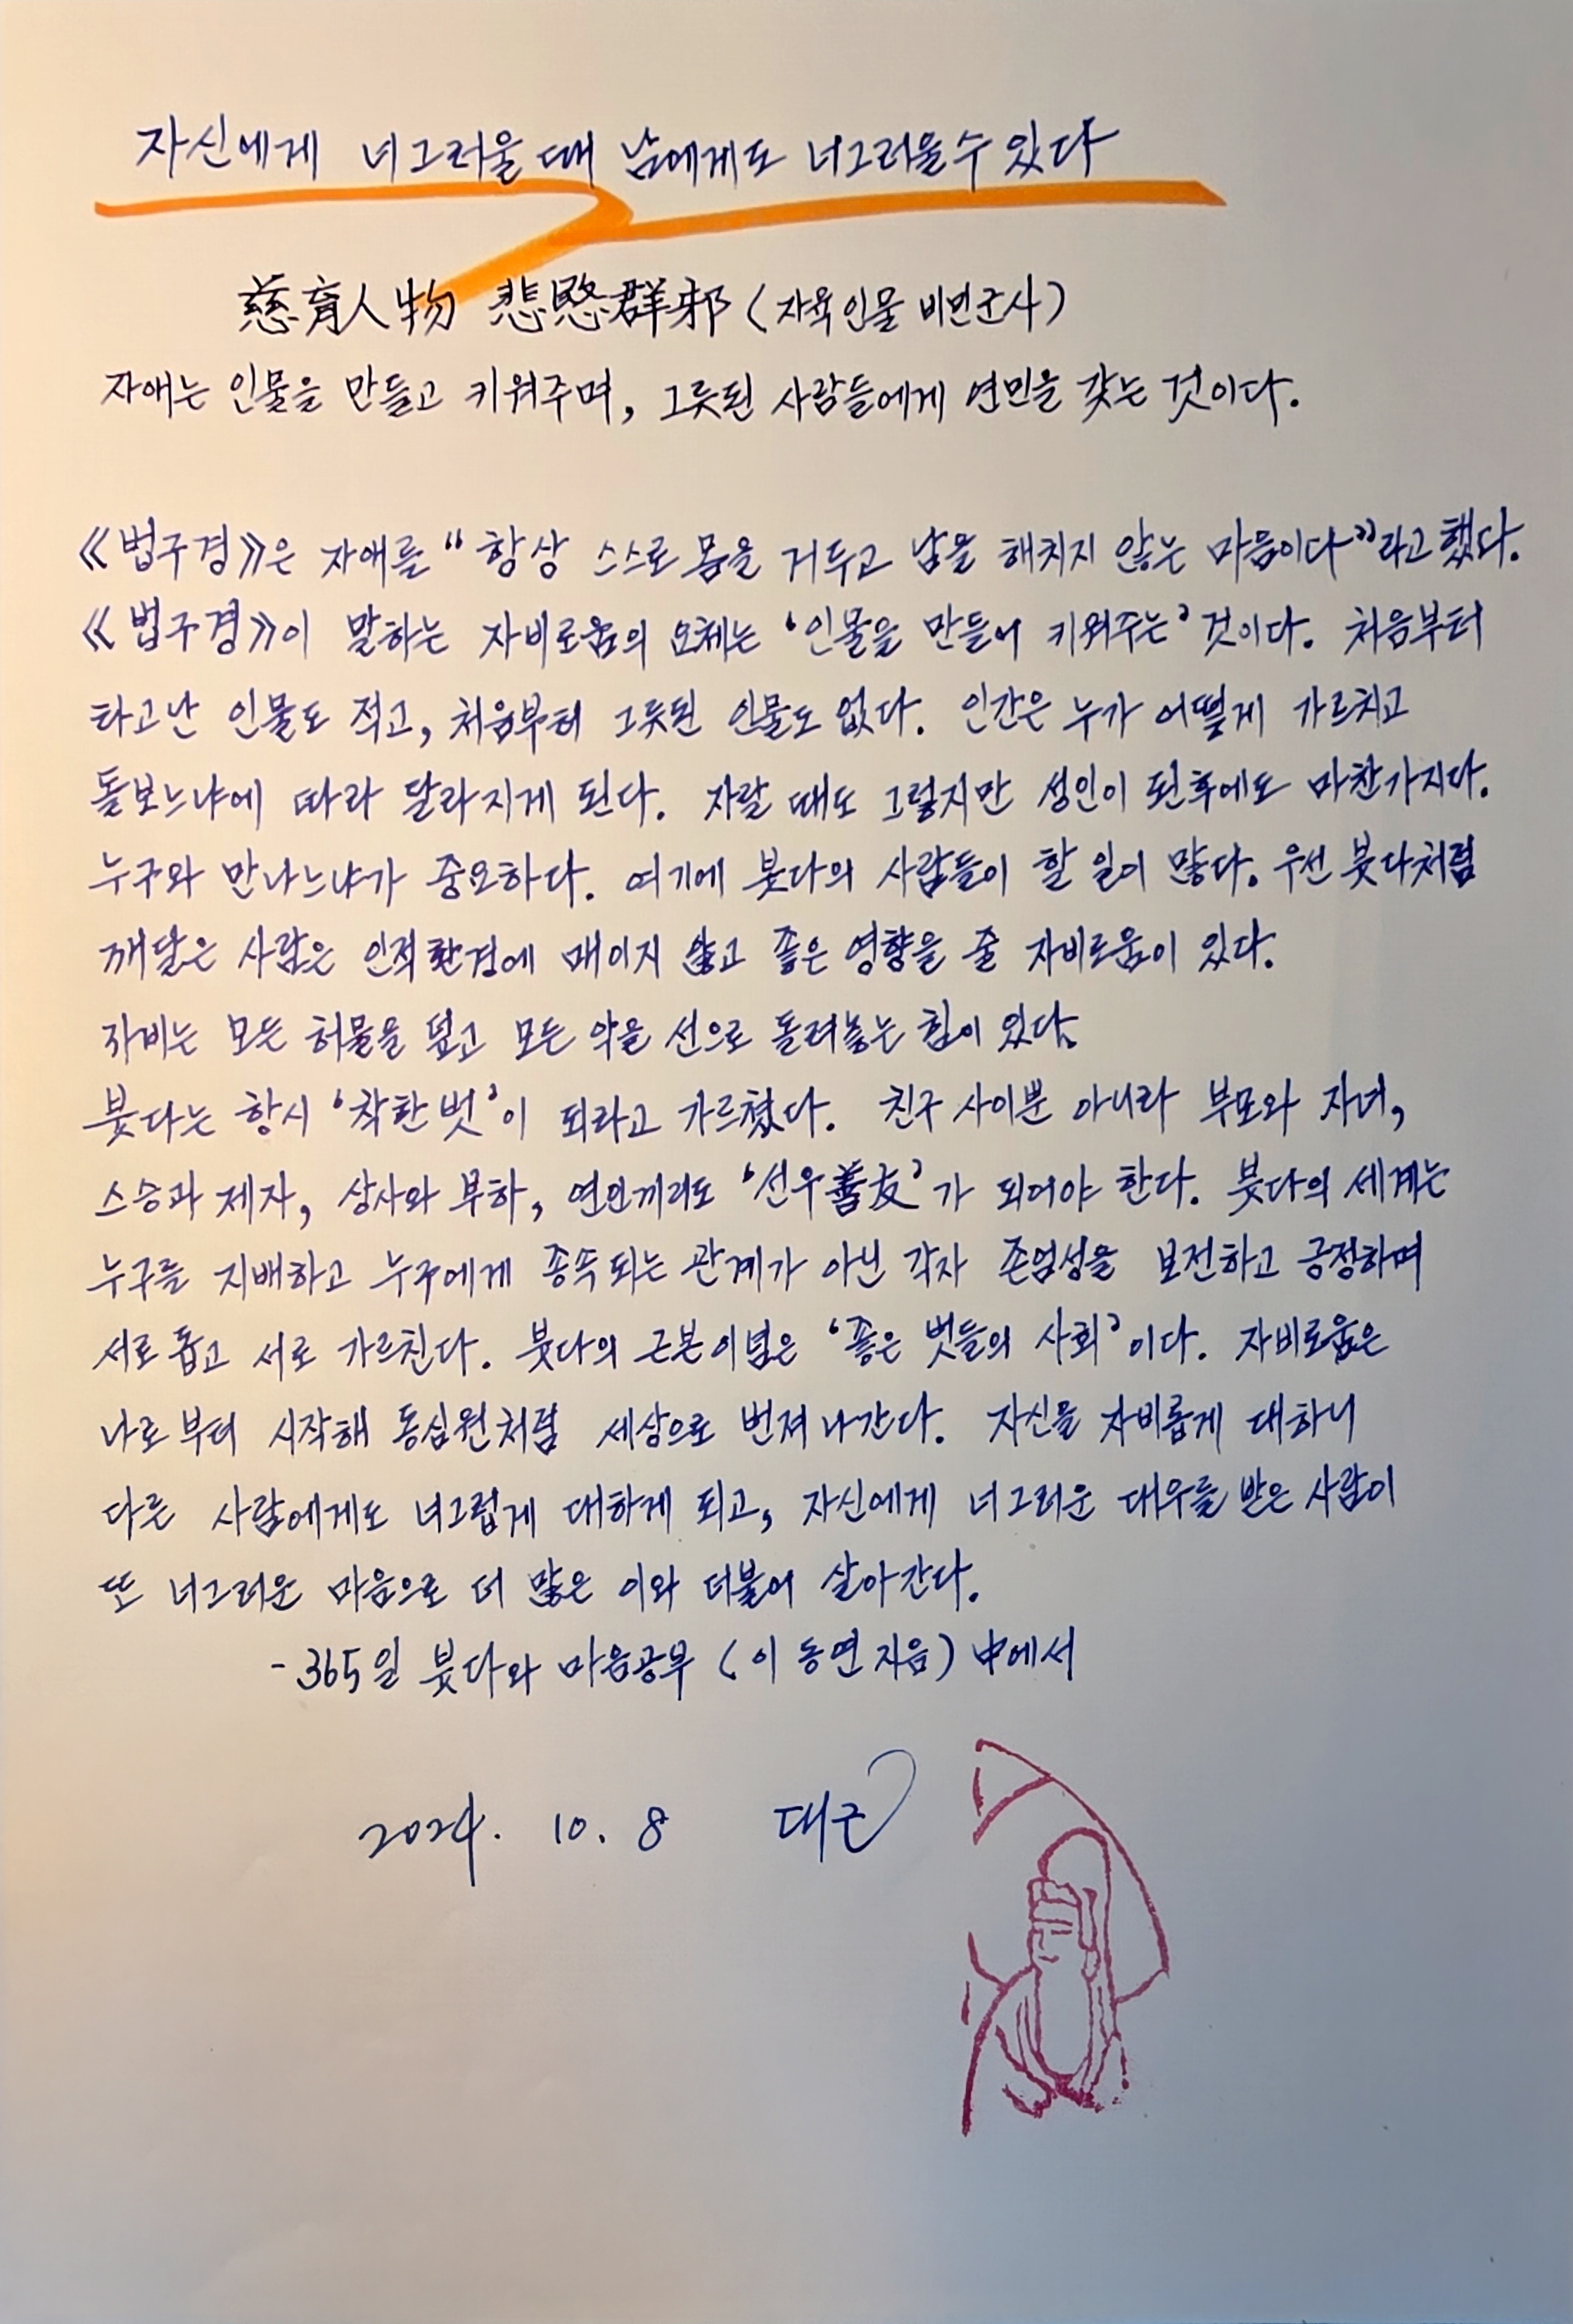 자신에게 너그러울 때 남에게도 너그러울 수 있다
慈育人物 悲愍群邪 (자육인물 비민군사)
자애는 인물을 만들고 키워주며, 그릇된 사람들에게 연민을 갖는 것이다.
《법구경》은 자애를 “항상 스스로 몸을 거두고 남을 해치지 않는 마음이다”라고 했다.
《법구경》이 말하는 자비로움의 요체는 ‘인물을 만들어 키워주는’ 것이다. 처음부터
타고난 인물도 적고, 처음부터 그릇된 인물도 없다. 인간은 누가 어떻게 가르치고
돌보느냐에 따라 달라지게 된다. 자랄 때도 그렇지만 성인이 된후에도 마찬가지다.
누구와 만나느냐가 중요하다. 여기에 붓다의 사람들이 할 일이 많다. 우선 붓다처럼
깨달은 사람은 인적환경에 매이지 않고 좋은 영향을 줄 자비로움이 있다.
자비는 모든 허물을 덮고 모든 악을 선으로 돌려놓는 힘이 있다.
붓다는 항시 ‘착한 벗’이 되라고 가르쳤다. 친구 사이뿐 아니라 부모와 자녀,
스승과 제자, 상사와 부하, 연인끼리도 ‘선우善友’가 되어야 한다. 붓다의 세계는
누구를 지배하고 누구에게 종속되는 관계가 아닌 각자 존엄성을 보전하고 긍정하며
서로 돕고 서로 가르친다. 붓다의 근본이념은 ‘좋은 벗들의 사회’이다. 자비로움은
나로부터 시작해 동심원처럼 세상으로 번져 나간다. 자신을 자비롭게 대하니
다른 사람에게도 너그럽게 대하게 되고, 자신에게 너그러운 대우를 받은 사람이
또 너그러운 마음으로 더 많은 이와 더불어 살아간다.
- 365일 붓다와 마음공부 (이동연 지음) 中에서
2024. 10. 8 대근